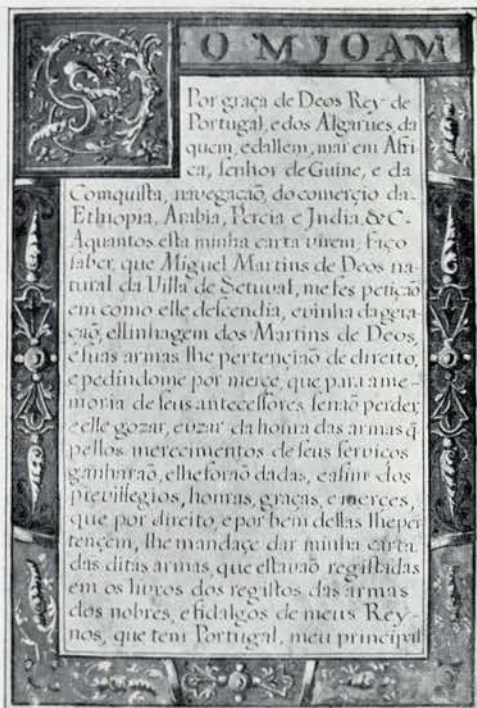 DOM JOAM
Por graça de Deos Rey de
Portugal, e dos Algarues, da
quem, e dallem, mar em Affri
ca, senhor de Guine, e da
Comquista, navegação, do comerçio da
Ethiopia, Arabia, Percia e Jndia, &C.
Aquantos esta minha carta virem, faço
saber, que Miguel Martins de Deos na
tural da Uilla de Setuval, me fes petição
em como elle descendia, e vinha da gera
ção, e llinhagem dos Martins de Deos,
e suas armas lhe pertençião de direito,
e pedindome por merçe, que para a me
moria de seus antecessores se não perder,
e elle gozar, e vzar da honra das armas q̃
pellos merecimentos de seus serviços
ganharaõ, e lhe foraõ dadas, e assim dos
previllegios, honras, graças, e merces,
que por direito, e por bem dellas lhe per
tençem, lhe mandaçe dar minha carta
das ditas armas, que estavaõ registadas
em os livros dos registos das armas
dos nobres, e fidalgos de meus Rey
nos, que tem Portugal, meu principal